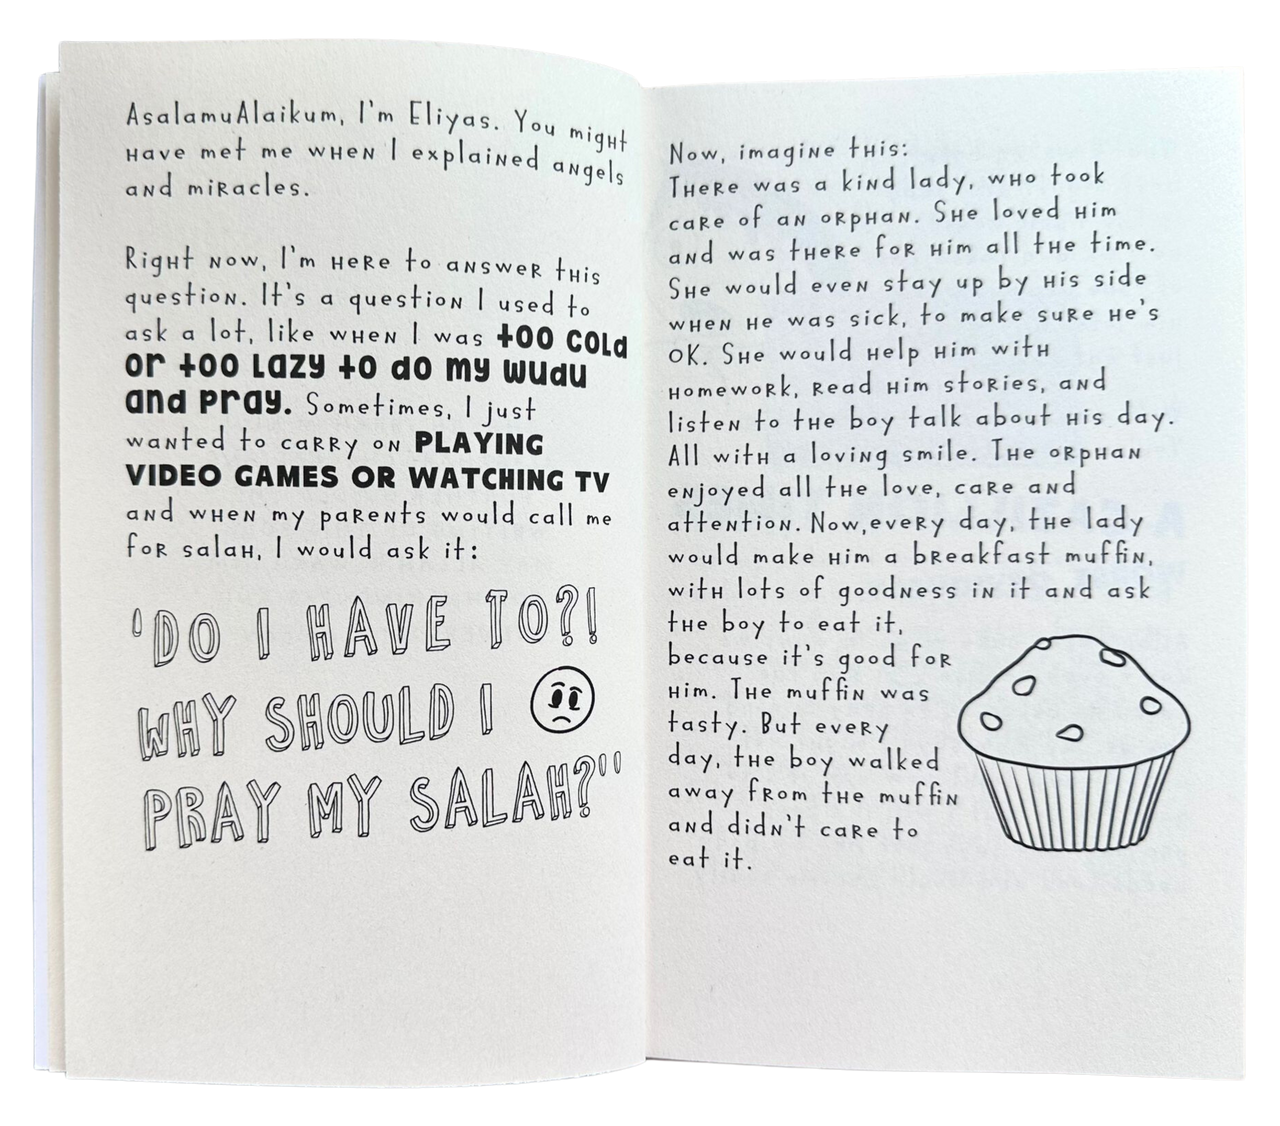 AsalamuAlaikum, I'm Eliyas. You might
have met me when I explained angels
and miracles.
Right now, I'm here to answer this
question. It's a question I used to
ask a lot, like when I was too cold
or too lazy to do my wudu
and pray. Sometimes, I just
wanted to carry on PLAYING
VIDEO GAMES OR WATCHING TV
and when my parents would call me
for salah, I would ask it:
'DO I HAVE TO?!
WHY SHOULD I
PRAY MY SALAH?''
Now, imagine this:
There was a kind lady, who took
care of an orphan. She loved him
and was there for him all the time.
She would even stay up by his side
when he was sick, to make sure he's
OK. She would help him with
homework, read him stories, and
listen to the boy talk about his day.
All with a loving smile. The orphan
enjoyed all the love, care and
attention. Now,every day, the lady
would make him a breakfast muffin,
with lots of goodness in it and ask
the boy to eat it,
because it's good for
him. The muffin was
tasty. But every
day, the boy walked
away from the muffin
and didn't care to
eat it.